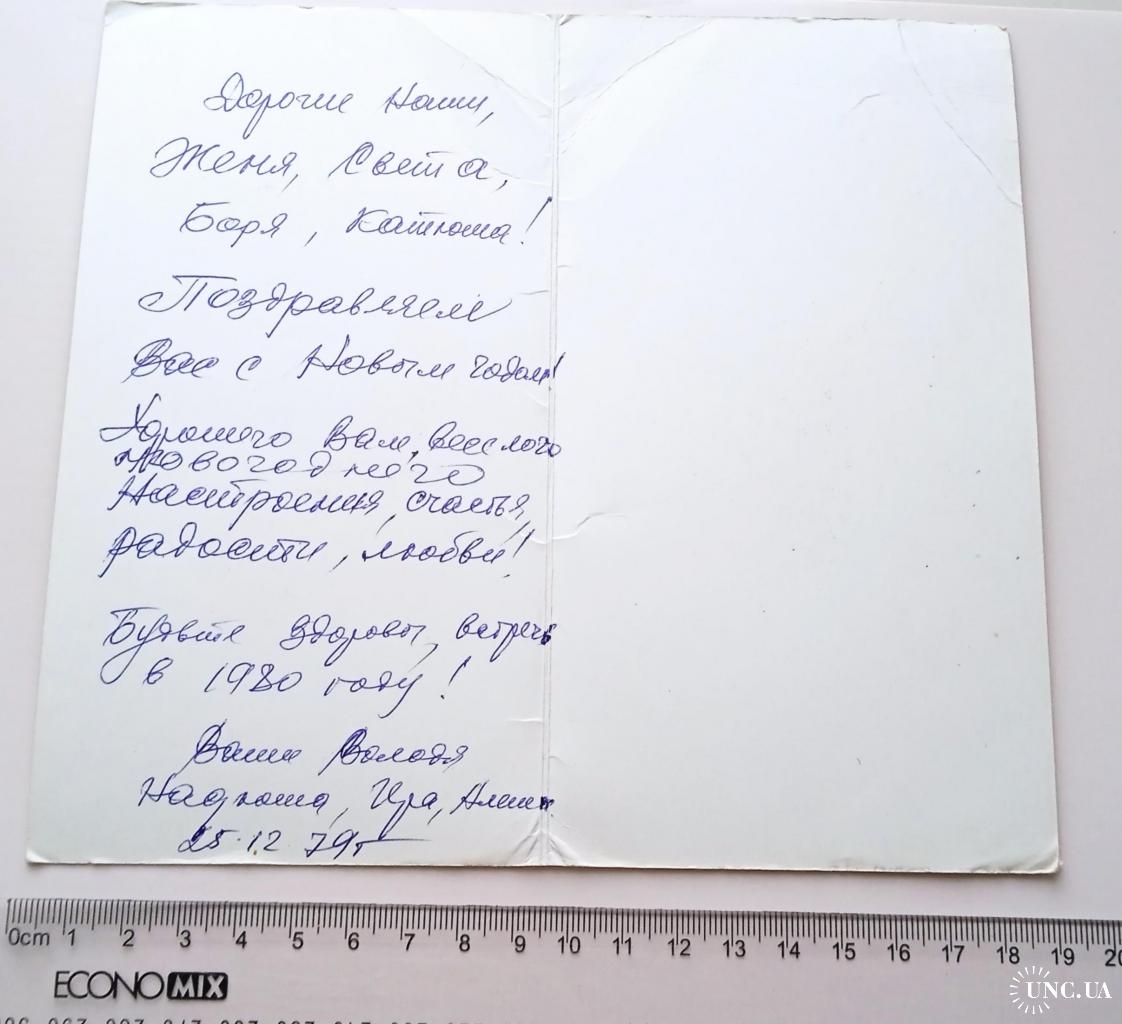 Дорогие Наши,
Женя, Света,
Боря, Катюша!
Поздравляем
Вас с Новым годом!
Хорошего Вам, веселого
новогоднего
Настроения, счастья,
радости, любви!
Будьте здоровы, встречи
в 1980 году!
Ваши Володя
Надюша, Ира,
25.12 79г
0cm 1 2 3 4 5 6 7 8 9 10 11 12 13 14 15 16 17 18 19 20
ECONOMIX
UNC.UA